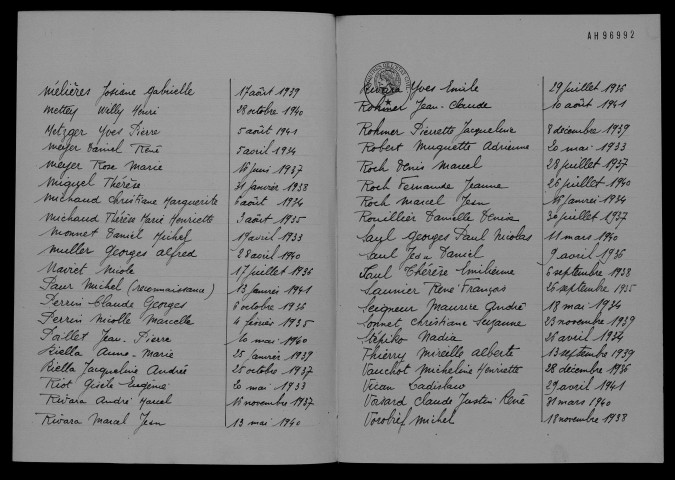 Mélières Josiane Gabrielle 17 août 1939
Mettey Willy Henri 28 octobre 1940
Metzger Yves Pierre 5 août 1941
Meyer Daniel René 5 avril 1934
Meyer Rose Marie 16 juin 1937
Miquel Thérèse 31 janvier 1938
Michaud Christiane Marguerite 6 août 1934
Michaud Thérèse Marie Henriette 3 août 1935
Monnet Daniel Michel 19 avril 1933
Muller Georges Alfred 28 août 1940
Naviet Nicole 17 juillet 1936
Paur Michel (reconnaissance) 13 janvier 1941
Perrin Claude Georges 6 octobre 1936
Perrin Nicolle Marcelle 4 février 1935
Pallet Jean-Pierre 10 mai 1940
Riella Anne-Marie 25 janvier 1939
Riella Jacqueline Andrée 25 octobre 1937
Riot Gisèle Eugénie 20 mai 1933
Rivara André Marcel 16 novembre 1937
Rivara Marcel Jean 13 mai 1940
AH96992
Rivara Yves Emile 29 juillet 1936
Rohmer Jean-Claude 10 août 1941
Rohmer Pierrette Jacqueline 8 décembre 1939
Robert Muguette Adrienne 20 mai 1933
Roch Denis Marcel 28 juillet 1937
Roch Fernande Jeanne 26 juillet 1940
Roch Marcel Jean 16 janvier 1934
Rouillier Danielle Denise 30 juillet 1937
Saul Georges Paul Nicolas 11 mars 1940
Saul Jean Daniel 9 avril 1936
Saul Thérèse Emilienne 6 septembre 1938
Saunier René François 26 septembre 1935
Seigneur Maurice André 18 mai 1934
Sonnet Christiane Suzanne 23 novembre 1939
Stépiko Nadia 26 avril 1934
Thierry Mireille Alberte 13 septembre 1939
Vauchot Micheline Henriette 28 décembre 1936
Vican Ladislaw 29 avril 1941
Voisard Claude Justin René 31 mars 1940
Vorobief Michel 18 novembre 1938